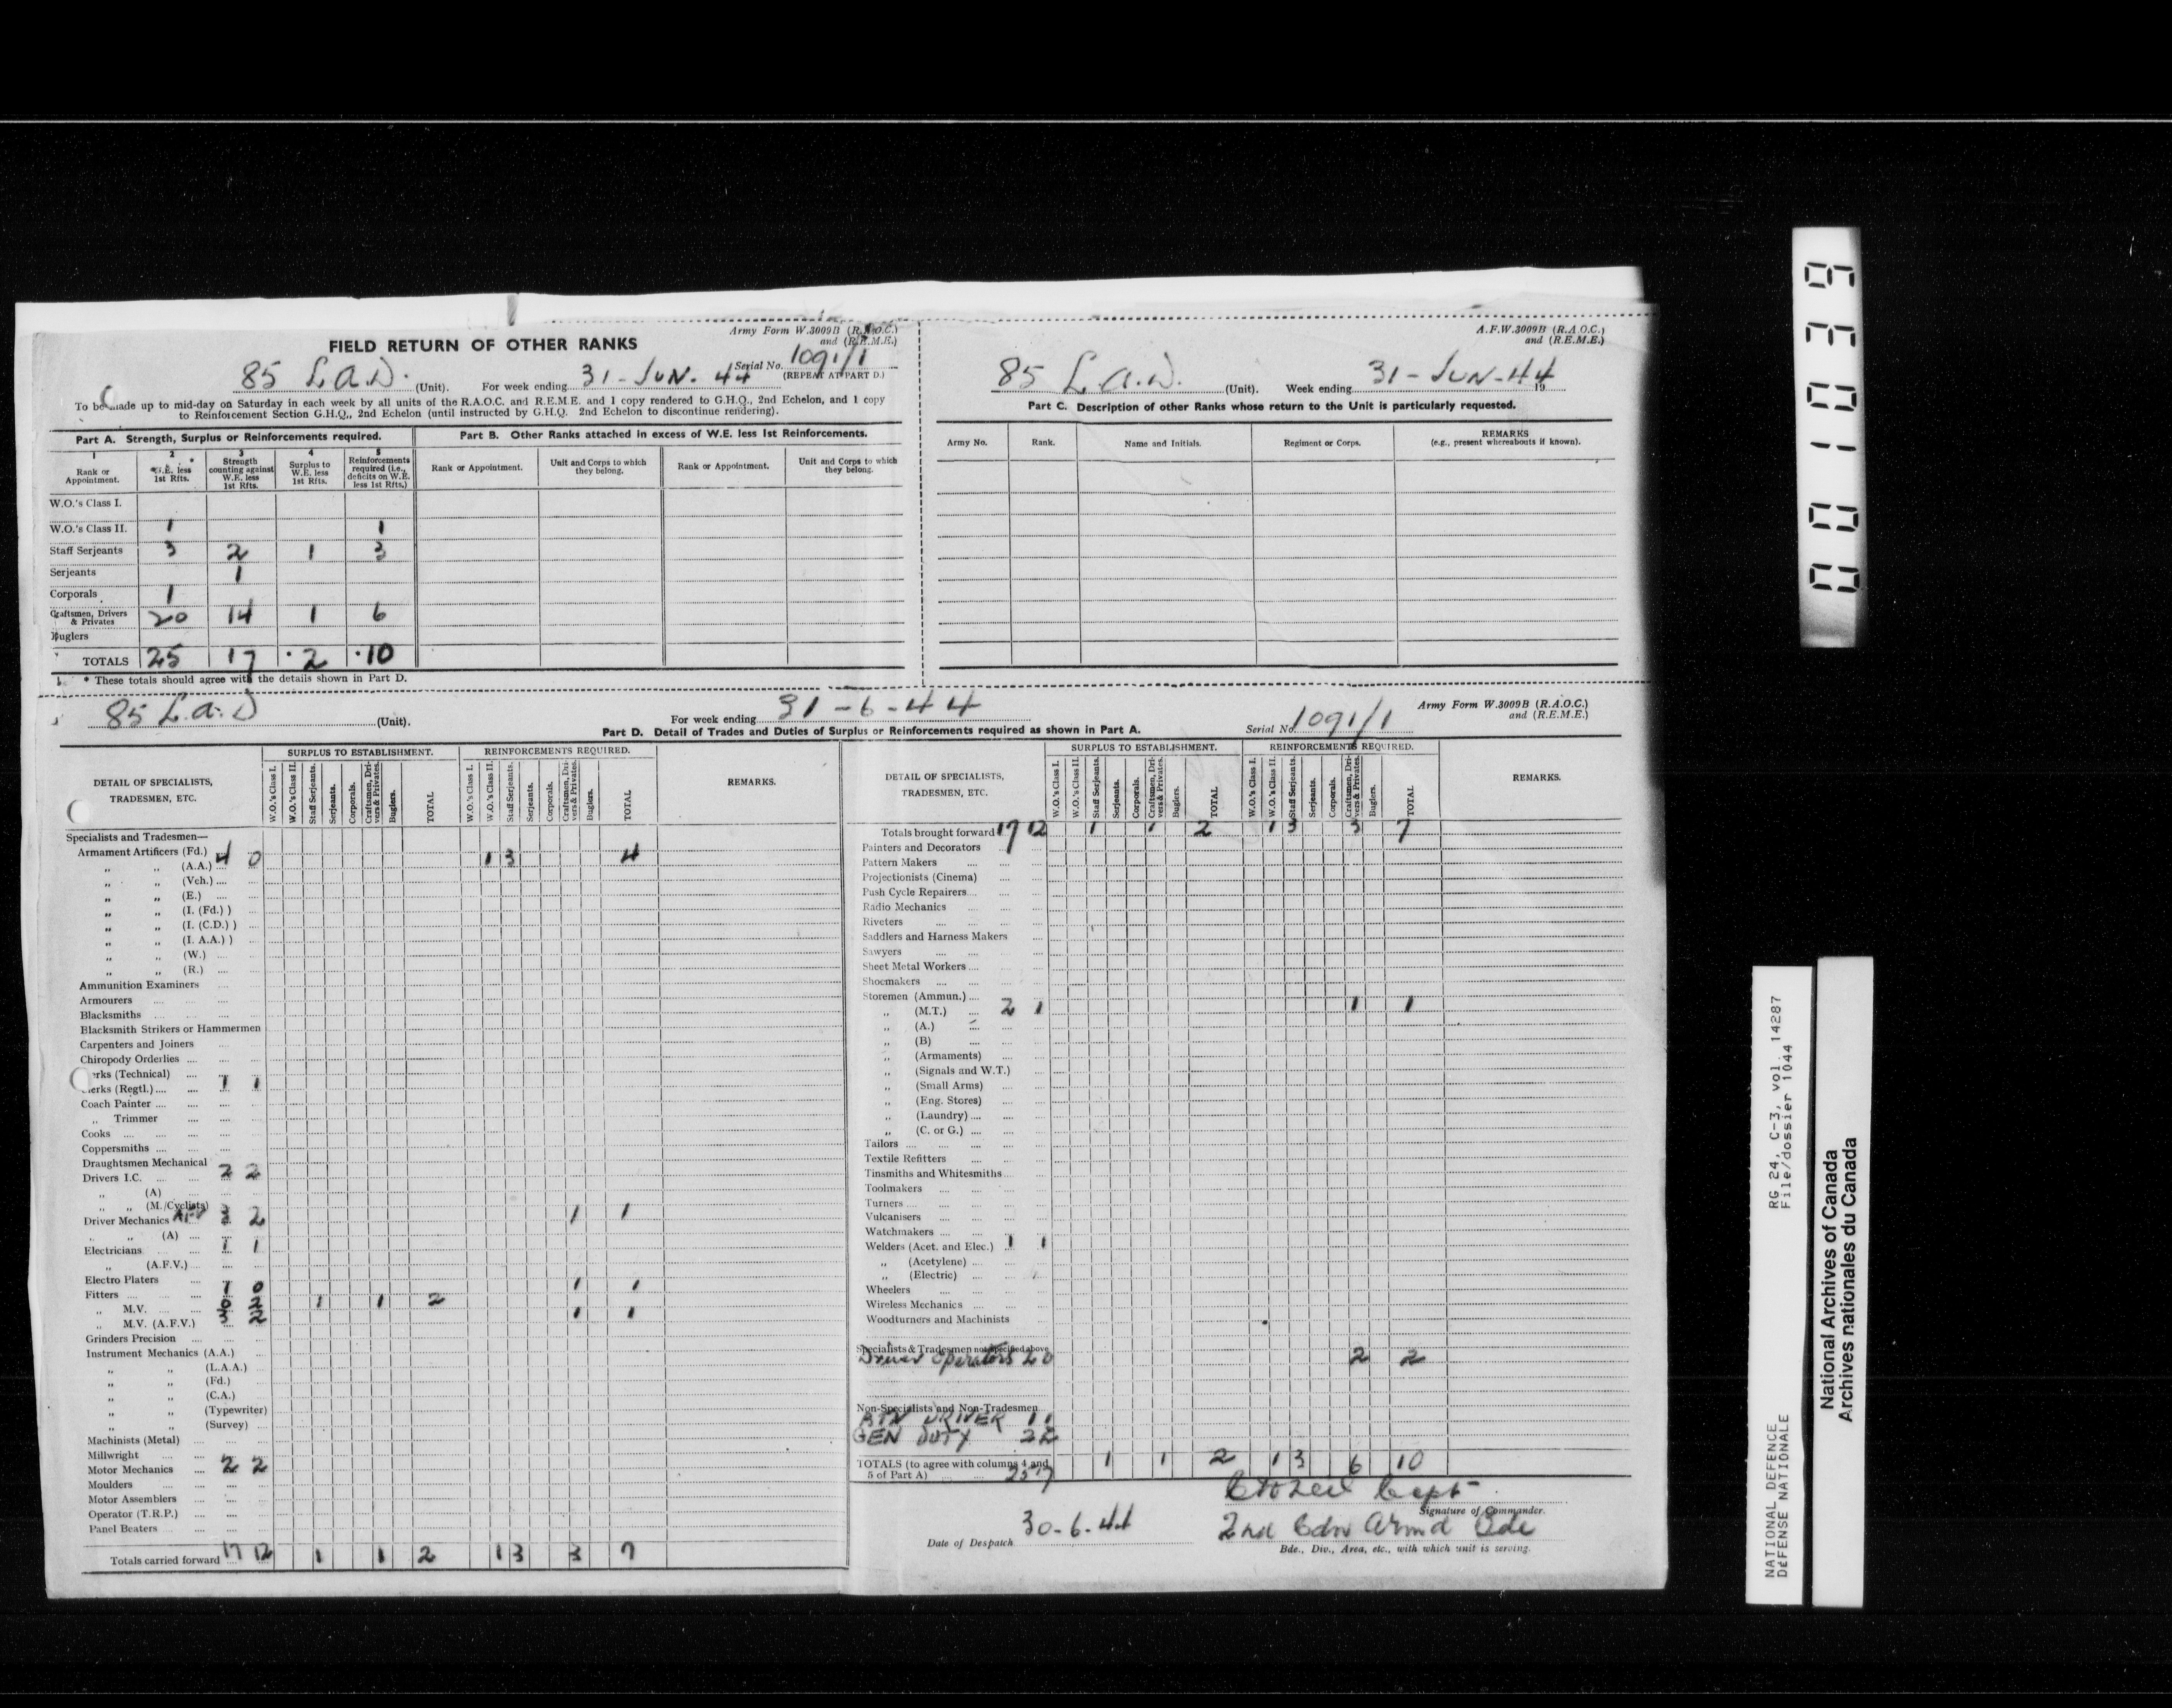 Army Form W.3009B (R.A.O.C.)
and (R.E.M.E.)
FIELD RETURN OF OTHER RANKS
Serial No. 1091/1
(REPEAT AT PART D.)
85 L.A.D. (Unit). For week ending 31-JUN. 44
To be made up to mid-day on Saturday in each week by all units of the R.A.O.C. and R.E.M.E. and 1 copy rendered to G.H.Q., 2nd Echelon, and 1 copy
to Reinforcement Section G.H.Q., 2nd Echelon (until instructed by G.H.Q. 2nd Echelon to discontinue rendering).
Part A. Strength, Surplus or Reinforcements required.
1 Rank or Appointment.
2 W.E. less 1st Rfts.
3 Strength counting against W.E. less 1st Rfts.
4 Surplus to W.E. less 1st Rfts.
5 Reinforcements required (i.e., deficits on W.E. less 1st Rfts.)
W.O.'s Class I.
W.O.'s Class II. 1 1
Staff Serjeants 3 2 1 3
Serjeants 1
Corporals 1
Craftsmen, Drivers & Privates 20 14 1 6
Buglers
TOTALS 25 17 2 10
* These totals should agree with the details shown in Part D.
Part B. Other Ranks attached in excess of W.E. less 1st Reinforcements.
Rank or Appointment. Unit and Corps to which they belong. Rank or Appointment. Unit and Corps to which they belong.
A.F.W.3009B (R.A.O.C.)
and (R.E.M.E.)
85 L.A.D. (Unit). Week ending 31-JUN-44 19
Part C. Description of other Ranks whose return to the Unit is particularly requested.
Army No. Rank. Name and Initials. Regiment or Corps. REMARKS (e.g., present whereabouts if known).
85 L.A.D (Unit). For week ending 31-6-44
Army Form W.3009B (R.A.O.C.)
and (R.E.M.E.)
Serial No. 1091/1
Part D. Detail of Trades and Duties of Surplus or Reinforcements required as shown in Part A.
DETAIL OF SPECIALISTS, TRADESMEN, ETC.
SURPLUS TO ESTABLISHMENT. REINFORCEMENTS REQUIRED.
W.O.'s Class I. W.O.'s Class II. Staff Serjeants. Serjeants. Corporals. Craftsmen, Drivers & Privates. Buglers. TOTAL
W.O.'s Class I. W.O.'s Class II. Staff Serjeants. Serjeants. Corporals. Craftsmen, Drivers & Privates. Buglers. TOTAL
REMARKS.
Specialists and Tradesmen—
Armament Artificers (Fd.) 4 0 1 3 4
„ „ (A.A.)
„ „ (Vch.)
„ „ (E.)
„ „ (I. (Fd.) )
„ „ (I. (C.D.) )
„ „ (I. A.A.) )
„ „ (W.)
„ „ (R.)
Ammunition Examiners
Armourers
Blacksmiths
Blacksmith Strikers or Hammermen
Carpenters and Joiners
Chiropody Orderlies
erks (Technical)
erks (Regtl.) 1 1
Coach Painter
„ Trimmer
Cooks
Coppersmiths
Draughtsmen Mechanical
Drivers I.C. 2 2
„ (A)
„ „ (M./Cyclists)
Driver Mechanics 3 2 1 1
„ „ (A)
Electricians 1 1
„ (A.F.V.)
Electro Platers
Fitters 1 0 1 1
„ M.V. 0 2 1 1 2
„ M.V. (A.F.V.) 3 2 1 1
Grinders Precision
Instrument Mechanics (A.A.)
„ „ (L.A.A.)
„ „ (Fd.)
„ „ (C.A.)
„ „ (Typewriter)
„ „ (Survey)
Machinists (Metal)
Millwright
Motor Mechanics 2 2
Moulders
Motor Assemblers
Operator (T.R.P.)
Panel Beaters
Totals carried forward 17 12 1 1 2 1 3 3 7
DETAIL OF SPECIALISTS, TRADESMEN, ETC.
SURPLUS TO ESTABLISHMENT. REINFORCEMENTS REQUIRED.
W.O.'s Class I. W.O.'s Class II. Staff Serjeants. Serjeants. Corporals. Craftsmen, Drivers & Privates. Buglers. TOTAL
W.O.'s Class I. W.O.'s Class II. Staff Serjeants. Serjeants. Corporals. Craftsmen, Drivers & Privates. Buglers. TOTAL
REMARKS.
Totals brought forward 17 12 1 1 2 1 3 3 7
Painters and Decorators
Pattern Makers
Projectionists (Cinema)
Push Cycle Repairers
Radio Mechanics
Riveters
Saddlers and Harness Makers
Sawyers
Sheet Metal Workers
Shoemakers
Storemen (Ammun.)
„ (M.T.) 2 1 1 1
„ (A.)
„ (B)
„ (Armaments)
„ (Signals and W.T.)
„ (Small Arms)
„ (Eng. Stores)
„ (Laundry)
„ (C. or G.)
Tailors
Textile Refitters
Tinsmiths and Whitesmiths
Toolmakers
Turners
Vulcanisers
Watchmakers
Welders (Acet. and Elec.) 1 1
„ (Acetylene)
„ (Electric)
Wheelers
Wireless Mechanics
Woodturners and Machinists
Specialists & Tradesmen not specified above
Driver Operators 2 0 2 2
Non-Specialists and Non-Tradesmen
BTN DRIVER 1 1
GEN DUTY 2 2
TOTALS (to agree with columns 4 and 5 of Part A) 25 17 1 1 2 1 3 6 10
Capt
Signature of Commander.
Date of Despatch 30-6-44
2nd Cdn Armd Bde
Bde., Div., Area, etc., with which unit is serving.
001039
RG 24, C-3, vol. 14287
File/dossier 1044
NATIONAL DEFENCE
DÉFENSE NATIONALE
National Archives of Canada
Archives nationales du Canada